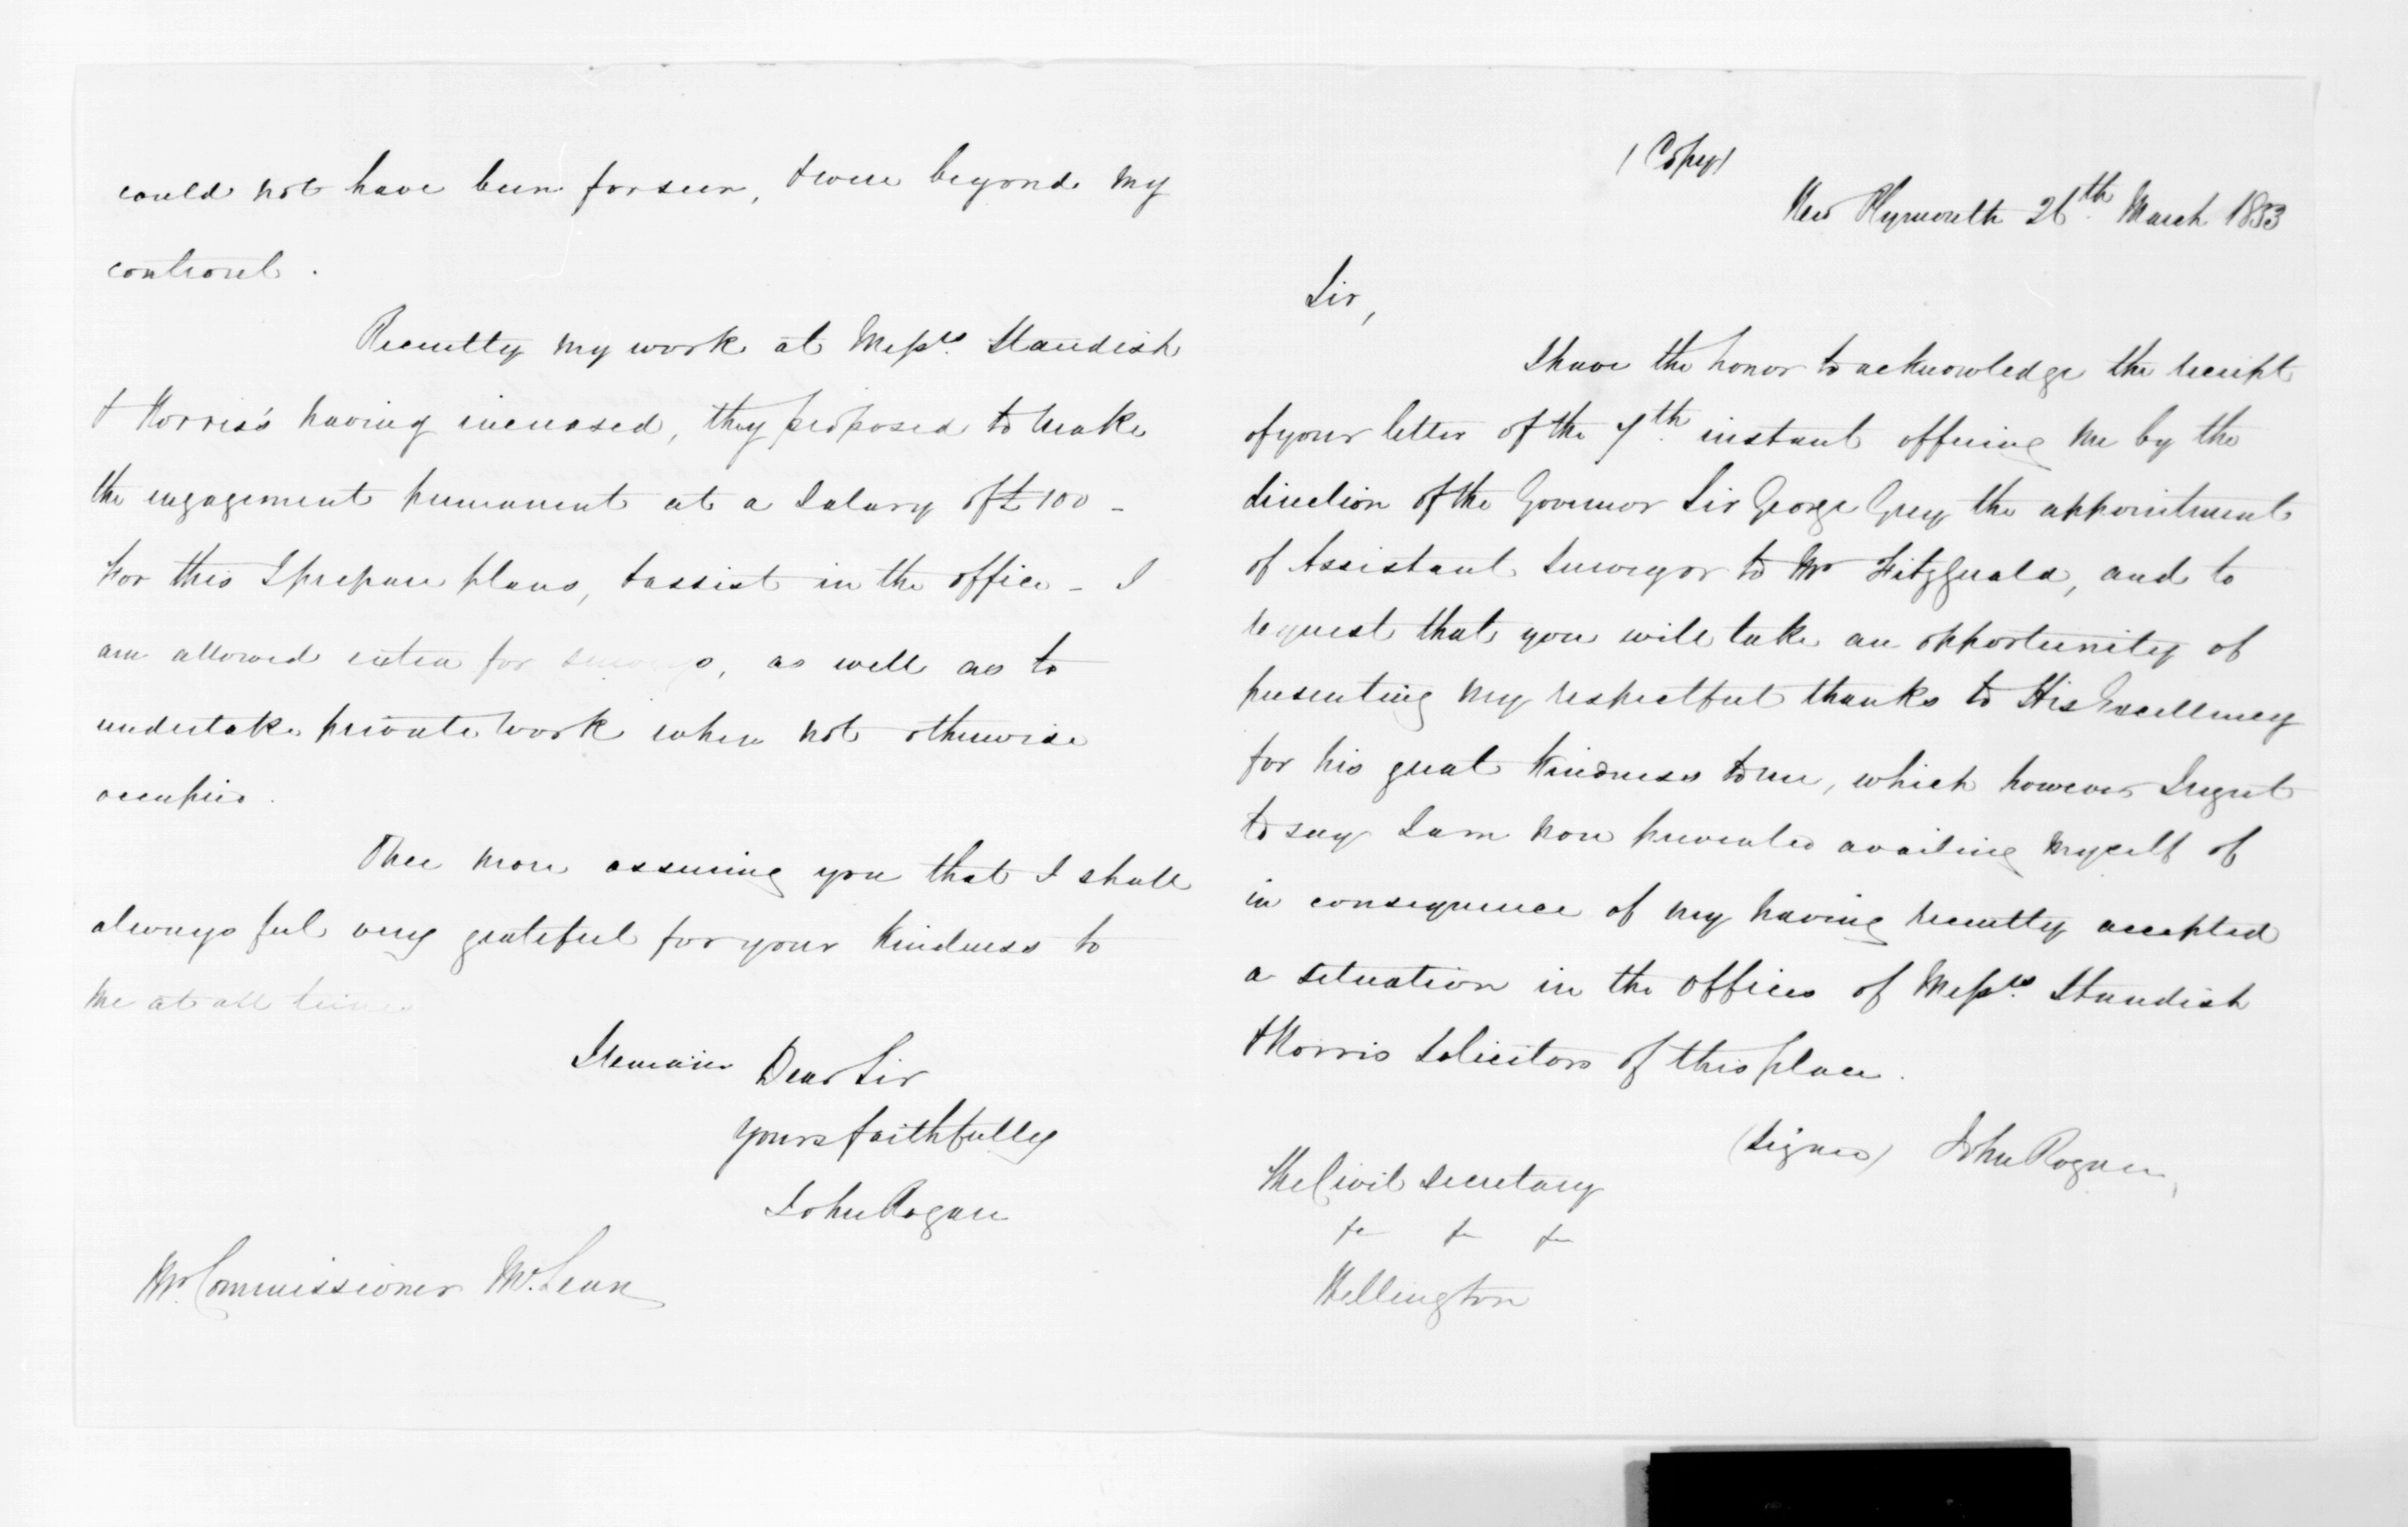 could not have been forseen, & were beyond my
controul.
Recently my work at Messrs. Standish
& Norris's having increased, they proposed to make
the engagement permanent at a Salary of £100 -
For this I prepare plans, & assist in the office - I
am allowed extra for surveys, as well as to
undertake private work when not otherwise
occupied.
Once more assuring you that I shall
always feel very grateful for your kindness to
me at all times
I remain Dear Sir
Yours faithfully
John Rogan
Mr. Commissioner McLean
(Copy)
New Plymouth 26th. March 1853
Sir,
I have the honor to acknowledge the receipt
of your letter of the 7th. instant offering me by the
direction of the Governor Sir George Grey the appointment
of Assistant Surveyor to Mr Fitzgerald, and to
request that you will take an opportunity of
presenting my respectful thanks to His Excellency
for his great kindness to me, which however I regret
to say I am now prevented availing myself of
in consequence of my having recently accepted
a situation in the Offices of Messrs. Standish
& Norris Solicitors of this place.
(Signed) John Rogan,
The Civil Secretary
&c &c &c
Wellington